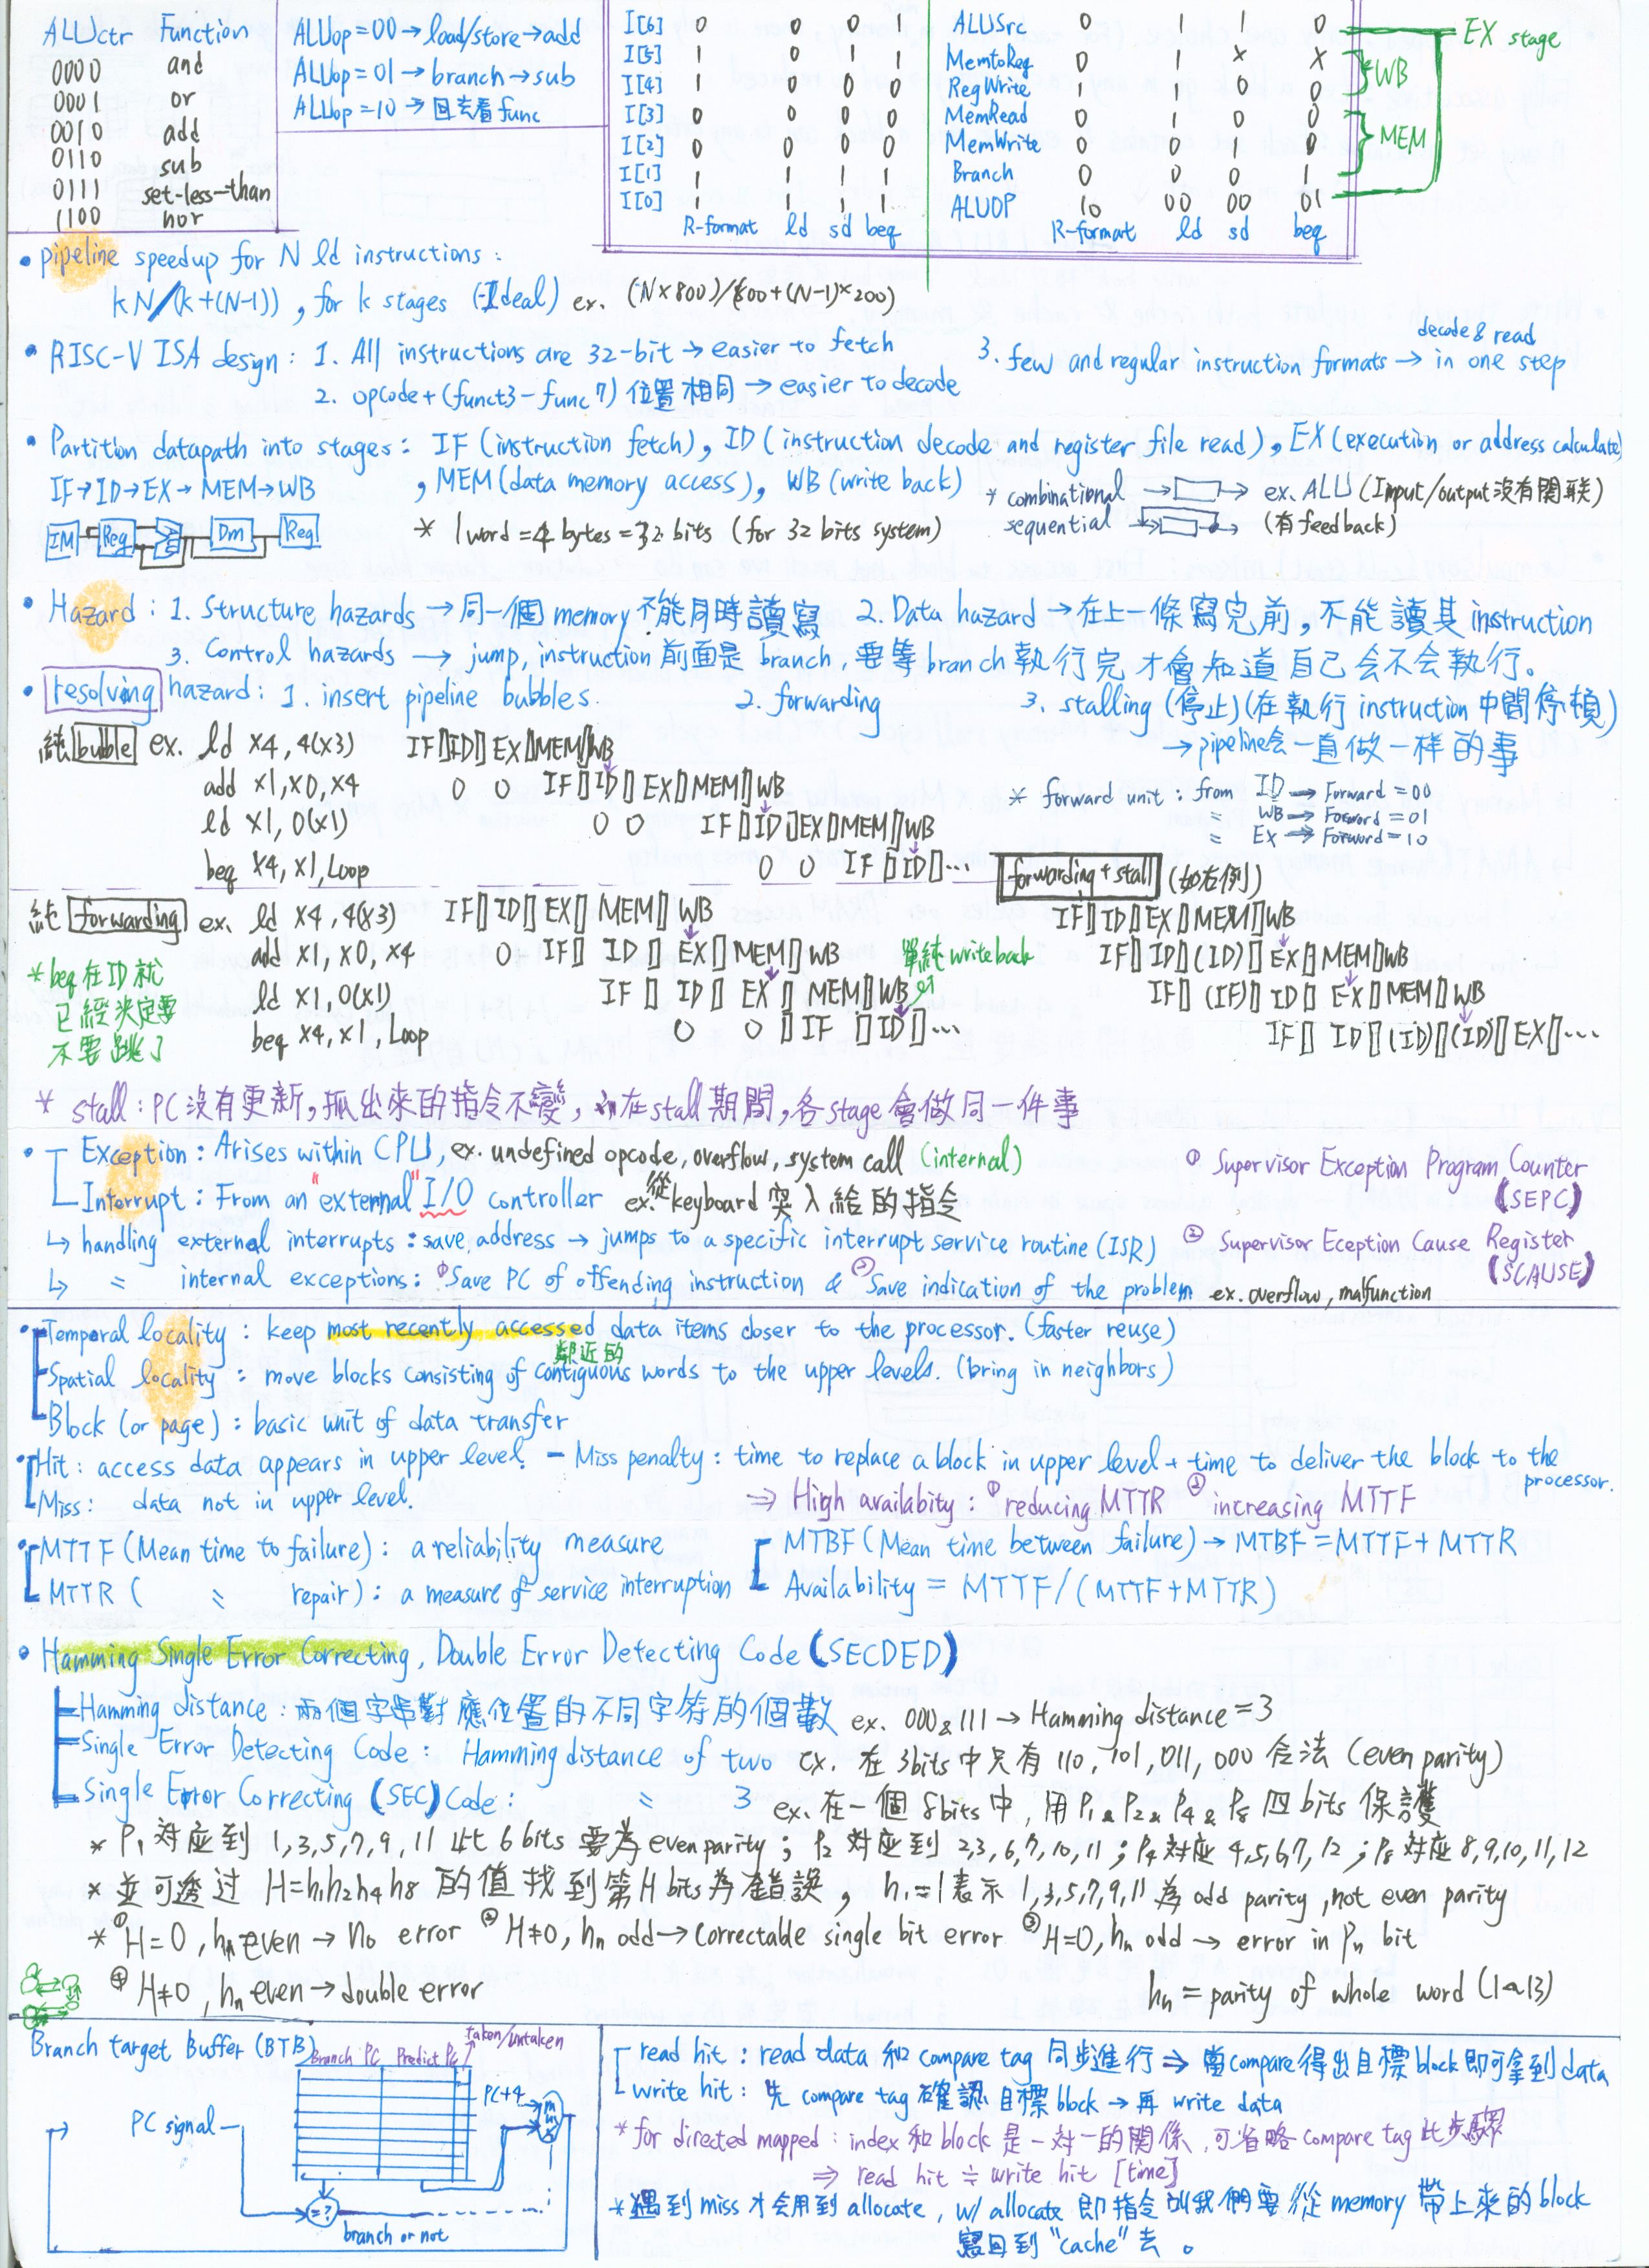 ALUctr Function
0000 and
0001 or
0010 add
0110 sub
0111 set-less-than
1100 nor
ALUop=00→load/store→add
ALUop=01→branch→sub
ALUop=10→回去看func
I[6] 0 0 0 1
I[5] 1 0 1 1
I[4] 1 0 0 0
I[3] 0 0 0 0
I[2] 0 0 0 0
I[1] 1 1 1 1
I[0] 1 1 1 1
R-format ld sd beq
ALUSrc 0 1 1 0
MemtoReg 0 1 X X
RegWrite 1 1 0 0
MemRead 0 1 0 0
MemWrite 0 0 1 0
Branch 0 0 0 1
ALUOP 10 00 00 01
R-format ld sd beq
EX stage
WB
MEM
• pipeline speedup for N ld instructions:
kN/(k+(N-1)), for k stages (Ideal) ex. (N×800)/800+(N-1)×200)
• RISC-V ISA design: 1. All instructions are 32-bit → easier to fetch
2. opcode+(funct3-func7)位置相同→easier to decode
3. few and regular instruction formats → decode & read in one step
• Partition datapath into stages: IF (instruction fetch), ID (instruction decode and register file read), EX (execution or address calculate)
IF→ID→EX→MEM→WB , MEM (data memory access), WB (write back)
* combinational → ex. ALU (Input/output沒有関联)
sequential (有feedback)
IM Reg Dm Reg
* 1word=4bytes=32bits (for 32 bits system)
• Hazard: 1. Structure hazards → 同一個memory不能同時讀寫 2. Data hazard → 在上一條寫完前,不能讀其instruction
3. Control hazards → jump, instruction前面是branch,要等branch執行完才會知道自己会不会執行。
• resolving hazard: 1. insert pipeline bubbles. 2. forwarding 3. stalling (停止)(在執行instruction中間停頓)
→pipeline会一直做一样的事
純bubble ex. ld x4, 4(x3) IF[]ID[]EX[]MEM[]WB
add x1,x0,x4 0 0 IF[]ID[]EX[]MEM[]WB
ld x1, 0(x1) 0 0 IF[]ID[]EX[]MEM[]WB
beq x4, x1, Loop 0 0 IF[]ID[]...
* forward unit: from ID → Forward=00
〃 WB → Forword=01
〃 Ex → Forword=10
forwarding+stall (如右例)
純forwarding ex. ld x4, 4(x3) IF[]ID[]EX[]MEM[]WB
add x1, x0, x4 0 IF[]ID[]EX[]MEM[]WB
ld x1, 0(x1) IF[]ID[]EX[]MEM[]WB
beq x4, x1, Loop 0 0 []IF[]ID[]...
單純writeback
IF[]ID[]EX[]MEM[]WB
IF[]ID[](ID)[]EX[]MEM[]WB
IF[](IF)[]ID[]EX[]MEM[]WB
IF[]ID[](ID)[](ID)[]EX[]...
*beq在ID就
已經決定要
不要跳了
* stall: PC沒有更新,抓出來的指令不變,在stall期間,各stage會做同一件事
• Exception: Arises within CPU, ex. undefined opcode, overflow, system call (internal)
Interrupt: From an "external" I/O controller ex. 從keyboard突入給的指令
① Supervisor Exception Program Counter
(SEPC)
↳ handling external interrupts: save address → jumps to a specific interrupt service routine (ISR)
② Supervisor Eception Cause Register
(SCAUSE)
↳ 〃 internal exceptions: ①Save PC of offending instruction & ②Save indication of the problem ex. overflow, malfunction
• Temporal locality: keep most recently accessed data items closer to the processor. (faster reuse)
鄰近的
Spatial locality: move blocks consisting of contiguous words to the upper levels. (bring in neighbors)
Block (or page): basic unit of data transfer
• Hit: access data appears in upper level. - Miss penalty: time to replace a block in upper level + time to deliver the block to the processor.
Miss: data not in upper level.
⇒ High availabity: ①reducing MTTR ②increasing MTTF
• MTTF (Mean time to failure): a reliability measure
MTTR ( 〃 repair): a measure of service interruption
MTBF (Mean time between failure) → MTBF=MTTF+MTTR
Availability = MTTF/(MTTF+MTTR)
• Hamming Single Error Correcting, Double Error Detecting Code (SECDED)
Hamming distance: 兩個字串對應位置的不同字符的個數 ex. 000&111 → Hamming distance=3
Single Error Detecting Code: Hamming distance of two ex. 在3bits中只有110, 101, 011, 000合法 (even parity)
Single Error Correcting (SEC) Code: 〃 3 ex. 在一個8bits中, 用P1&P2&P4&P8四bits保護
* P1対应到1,3,5,7,9,11此6bits要為even parity; P2対应到2,3,6,7,10,11; P4対应4,5,6,7,12; P8対应8,9,10,11,12
* 並可透过H=h1h2h4h8的值找到第H bits為錯誤, h1=1表示1,3,5,7,9,11為odd parity, not even parity
* ①H=0, hn even → no error ②H≠0, hn odd → Correctable single bit error ③H=0, hn odd → error in Pn bit
④H≠0, hn even → double error
hn = parity of whole word (1~13)
Branch target Buffer (BTB)
Branch PC Predict PC taken/untaken
PC signal
PC+4
mux
=?
branch or not
read hit: read data和compare tag同步進行⇒當compare得出目標block即可拿到data
write hit: 先compare tag確認目標block→再write data
* for directed mapped: index和block是一対一的関係,可省略compare tag此步驟
⇒ read hit ≒ write hit [time]
*遇到miss才会用到allocate, w/ allocate即指令叫我們要從memory帶上來的block
寫回到"cache"去。